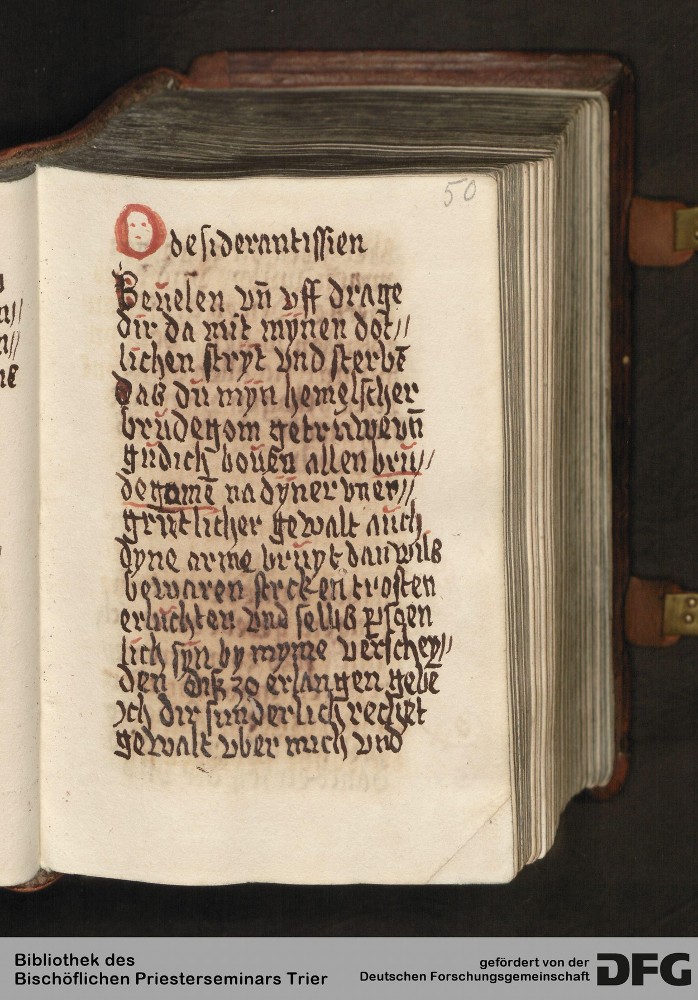 50
O desiderantissien
Beuelen vn̄ vff drage
dir da mit mynen dot//
lichen stryt vnd sterbē
Das du myn hemelscher
brudegom getruwe vn̄
gudich bouen allen bru//
degomē na dyner vner//
grutlicher gewalt auch
dyne arme bruyt dan wilß
bewaren stercken trosten
erluchten vnd selbß ꝑsoen
lich syn by myme verschey//
den Diß zo erlangen gebē
ich dir sunderlich rechet
gewalt vber mich vnd
Bibliothek des
Bischöflichen Priesterseminars Trier
gefördert von der
Deutschen Forschungsgemeinschaft
DFG